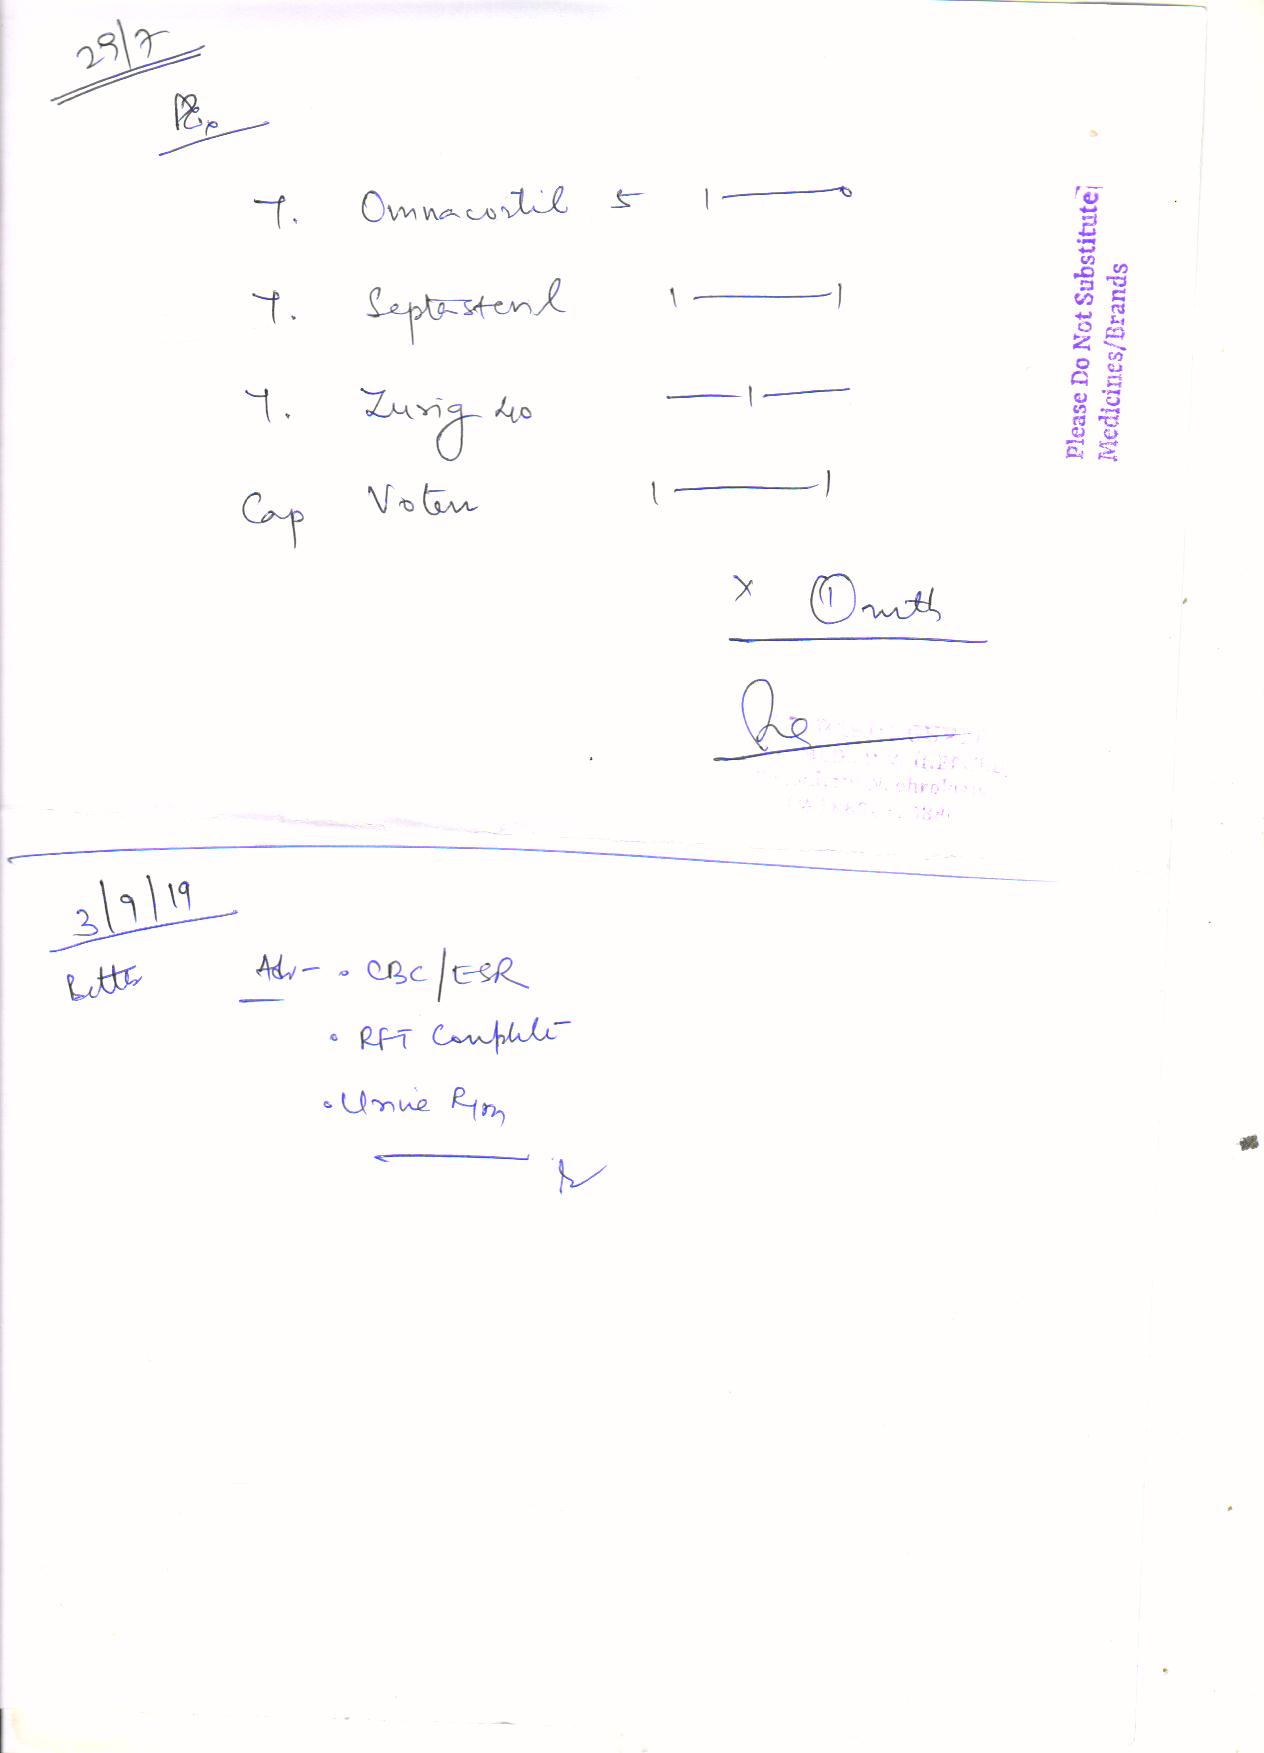 29/7
Rx
T. Omnacortil 5 1——0
T. 1——1
T. Zurig 40 —1—
Cap Voten 1——1
x ① mth
Please Do Not Substitute
Medicines/Brands
3/9/19
Better Adv - • CBC/ESR
• RFT Complete
• Urine R/m